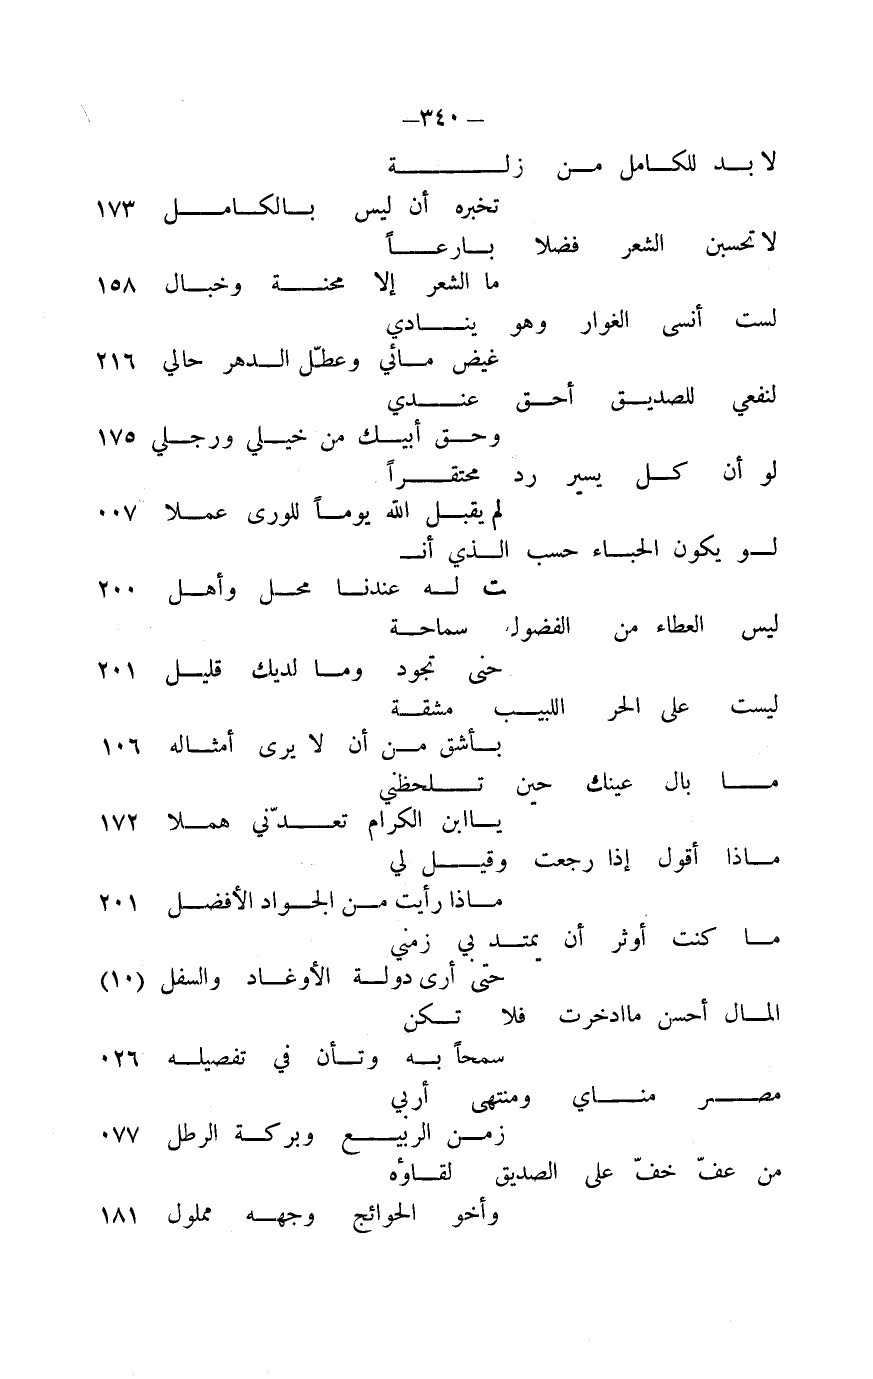 — ٣٤٠ —
لا بد للكامل من زلة
تخبره أن ليس بالكامل ١٧٣
لا تحسبن الشعر فضلا بارعاً
ما الشعر إلا محنة وخبال ١٥٨
لست أنسى الغوار وهو ينادي
غيض مائي وعطّل الدهر حالي ٢١٦
لنفعي للصديق أحق عندي
وحق أبيك من خيلي ورجلي ١٧٥
لو أن كل يسير رد محتقراً
لم يقبل الله يوماً للورى عملا ٠٠٧
لو يكون الحباء حسب الذي أنـ
ـت له عندنا محل وأهل ٢٠٠
ليس العطاء من الفضول سماحة
حتى تجود وما لديك قليل ٢٠١
ليست على الحر اللبيب مشقة
بأشق من أن لا يرى أمثاله ١٠٦
ما بال عينك حين تلحظني
ياابن الكرام تعدّني هملا ١٧٢
ماذا أقول إذا رجعت وقيل لي
ماذا رأيت من الجواد الأفضل ٢٠١
ما كنت أوثر أن يمتد بي زمني
حتى أرى دولة الأوغاد والسفل (١٠)
المال أحسن ماادخرت فلا تكن
سمحاً به وتأن في تفصيله ٠٢٦
مصر مناي ومنتهى أربي
زمن الربيع وبركة الرطل ٠٧٧
من عفّ خفّ على الصديق لقاؤه
وأخو الحوائج وجهه مملول ١٨١